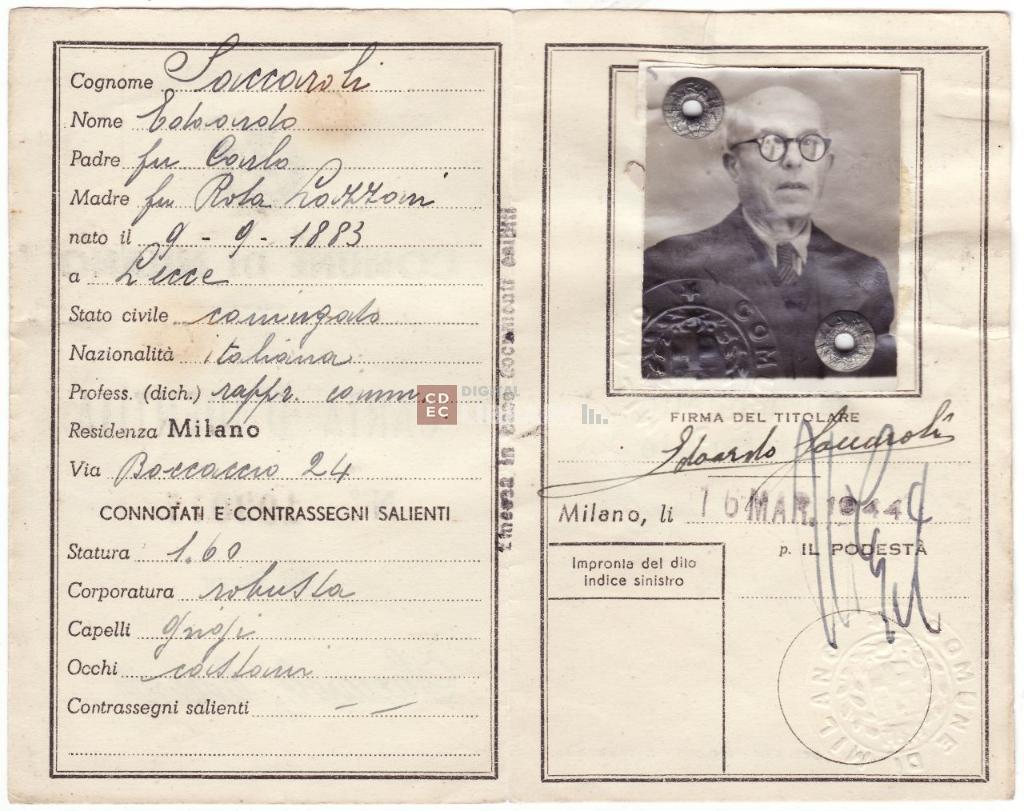 Cognome Saccaroli
Nome Edoardo
Padre fu Carlo
Madre fu Rosa Lazzari
nato il 9 - 9 - 1883
a Lecce
Stato civile coniugato
Nazionalità italiana
Profess. (dich.) rappr. comm.
Residenza Milano
Via Boccaccio 24
CONNOTATI E CONTRASSEGNI SALIENTI
Statura 1.60
Corporatura robusta
Capelli grigi
Occhi castani
Contrassegni salienti — —
in caso documenti esibiti
CDEC
DIGITAL
FIRMA DEL TITOLARE
Edoardo Saccaroli
Milano, li 16 MAR. 1944
p. IL PODESTÀ
Impronta del dito
indice sinistro
COMUNE DI MILANO